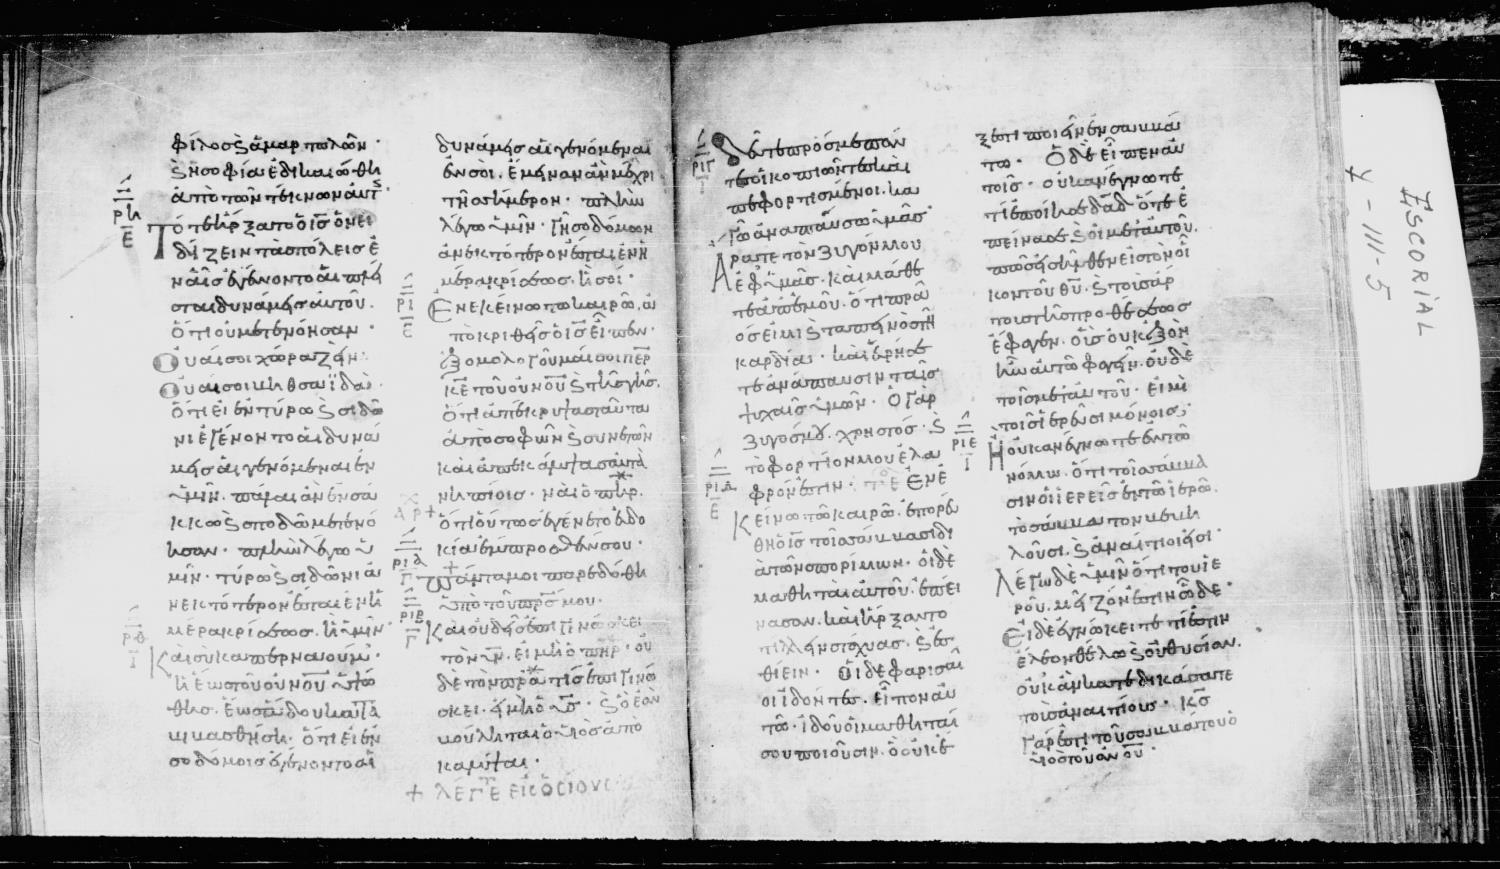 φίλος ϗ ἁμαρτωλῶν·
ϗ ἡ σοφία ἐδικαιώθη
ἀπὸ τῶν τέκνων αὐτῆς·
Τότε ἤρξατο ὁ ισ ὀνει
δίζειν τὰς πόλεις ἐ
ν αἷς ἐγένοντο αἱ πλεῖ
σται δυνάμεις αὐτοῦ·
ὅτι οὐ μετενόησαν·
Οὐαί σοι χωραζίν·
Οὐαί σοι βηθσαϊδά·
ὅτι εἰ ἐν τύρω ϗ σιδῶ
νι ἐγένοντο αἱ δυνά
μεις αἱ γενόμεναι ἐν
ὑμῖν· πάλαι ἂν ἐν σα
κκω ϗ σποδῶ μετενό
ησαν· πλὴν λέγω ὑ
μῖν· τύρω ϗ σιδῶνι ἀ
νεκτότερον ἔσται ἐν ἡ
μέρα κρίσεως· ἢ ὑμῖν·
Καὶ σὺ καπερναούμ·
ἡ ἕως τοῦ ουνου ὑψω
θεῖσα· ἕως ἅδου κατα
βιβασθήση· ὅτι εἰ ἐν
σοδόμοις ἐγένοντο αἱ
δυνάμεις αἱ γενόμεναι
ἐν σοι· ἔμειναν ἂν μέχρι
τῆς σήμερον· πλὴν
λέγω ὑμῖν· γῆ σοδόμων
ἀνεκτότερον ἔσται ἐν ἡ
μέρα κρίσεως· ἢ σοί·
Ἐν ἐκείνω τῶ καιρῶ· ἀ
ποκριθεὶς ὁ ισ εἶπεν·
ἐξομολογοῦμαί σοι περ
κε τοῦ ουνου ϗ τῆς γῆς·
ὅτι ἀπέκρυψας ταῦτα
ἀπὸ σοφῶν ϗ συνετῶν
καὶ ἀπεκάλυψας αὐτὰ
νηπίοις· ναὶ ὁ πηρ·
ὅτι οὕτως ἐγένετο εὐδο
κία ἔμπροσθέν σου·
Πάντα μοι παρεδόθη
ὑπὸ τοῦ πρσ μου·
Καὶ οὐδεὶς ἐπιγινώσκει
τὸν υν· εἰ μὴ ὁ πηρ· οὐ
δὲ τὸν πρα τίς ἐπιγινώ
σκει· εἰ μὴ ὁ υσ· ϗ ὧ ἐὰν
βούληται ὁ υἱὸς ἀπο
καλύψαι·
+ ΛΕΓΕ ΕΙΣ ΟΣΙΟΥΣ
Δεῦτε πρός με πάν
τες οἱ κοπιῶντες καὶ
πεφορτισμένοι· κα
γῶ ἀναπαύσω ὑμᾶς·
Ἄρατε τὸν ζυγόν μου
ἐφ ὑμᾶς· καὶ μάθε
τε ἀπ ἐμοῦ· ὅτι πρᾶ
ός εἰμι ϗ ταπεινὸς τῆ
καρδία· καὶ εὑρήσε
τε ἀνάπαυσιν ταῖς
ψυχαῖς ὑμῶν· Ὁ γὰρ
ζυγός μου χρηστός· ϗ
τὸ φορτίον μου ἐλα
φρόν ἐστιν· Ἐν ἐ
κείνω τῶ καιρῶ· ἐπορεύ
θη ὁ ισ τοῖς σάββασι δι
ὰ τῶν σπορίμων· οἱ δὲ
μαθηταὶ αὐτοῦ· ἐπεί
νασαν· καὶ ἤρξαντο
τίλλειν στάχυας· ϗ ἐσ
θίειν· Οἱ δὲ φαρισαῖ
οι ἰδόντες· εἶπον αὐ
τῶ· ἰδοὺ οἱ μαθηταί
σου ποιοῦσιν· ὃ οὐκ ἔ
ξεστι ποιεῖν ἐν σαββά
τω· Ὁ δὲ εἶπεν αὐ
τοῖς· οὐκ ἀνέγνωτε
τί ἐποίησε δαδ· ὅτε ἐ
πείνασε ϗ οἱ μετ αὐτοῦ·
πῶς εἰσῆλθεν εἰς τὸν οἶ
κον τοῦ θυ· ϗ τοὺς ἄρ
τους τῆς προθέσεως
ἔφαγεν· οὓς οὐκ ἐξὸν
ἦν αὐτῶ φαγεῖν· οὐδὲ
τοῖς μετ αὐτοῦ· εἰ μὴ
τοῖς ἱερεῦσι μόνοις;
Ἢ οὐκ ἀνέγνωτε ἐν τῶ
νόμω· ὅτι τοῖς σάββα
σιν οἱ ἱερεῖς ἐν τῶ ἱερῶ·
τὸ σάββατον βεβη
λοῦσι· ϗ ἀναίτιοί εἰσι·
Λέγω δὲ ὑμῖν ὅτι τοῦ ἱε
ροῦ· μεῖζόν ἐστιν ὧδε·
Εἰ δὲ ἐγνώκειτε τί ἐστιν
ἔλεον θέλω ϗ οὐ θυσίαν·
οὐκ ἂν κατεδικάσατε
τοὺς ἀναιτίους· Κσ
γάρ ἐστι τοῦ σαββάτου ὁ
υἱὸς τοῦ ανου·
ESCORIAL
Y-III-5